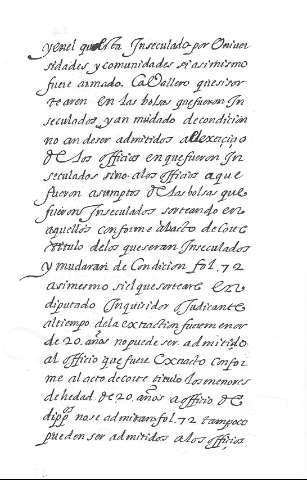 y en el que esta Inseculado por Univer
sidades y comunidades si asimismo
fuere armado. Cavallero que si sor
tearen en las bolsas que fueron In
seculados y an mudado de condicion
no an de ser admitidos al exercicio
de los officios en que fueron In
seculados sino a los officios a que
fueron asumptos de las bolsas que
fueron Inseculados sorteando en
aquellos conforme el acto de Corte
titulo de los que seran Inseculados
y mudaran de Condicion fol. 72
asimesmo si el que sorteare en
diputado Inquisidor o Judicante
al tiempo de la extraction fuere menor
de 20. años no puede ser admitido
al officio que fuere Extracto confor
me al acto de corte titulo los menores
de hedad de 20. años a officio de
dipp.do no se admitan fol. 72 tampoco
pueden ser admitidos a los officios